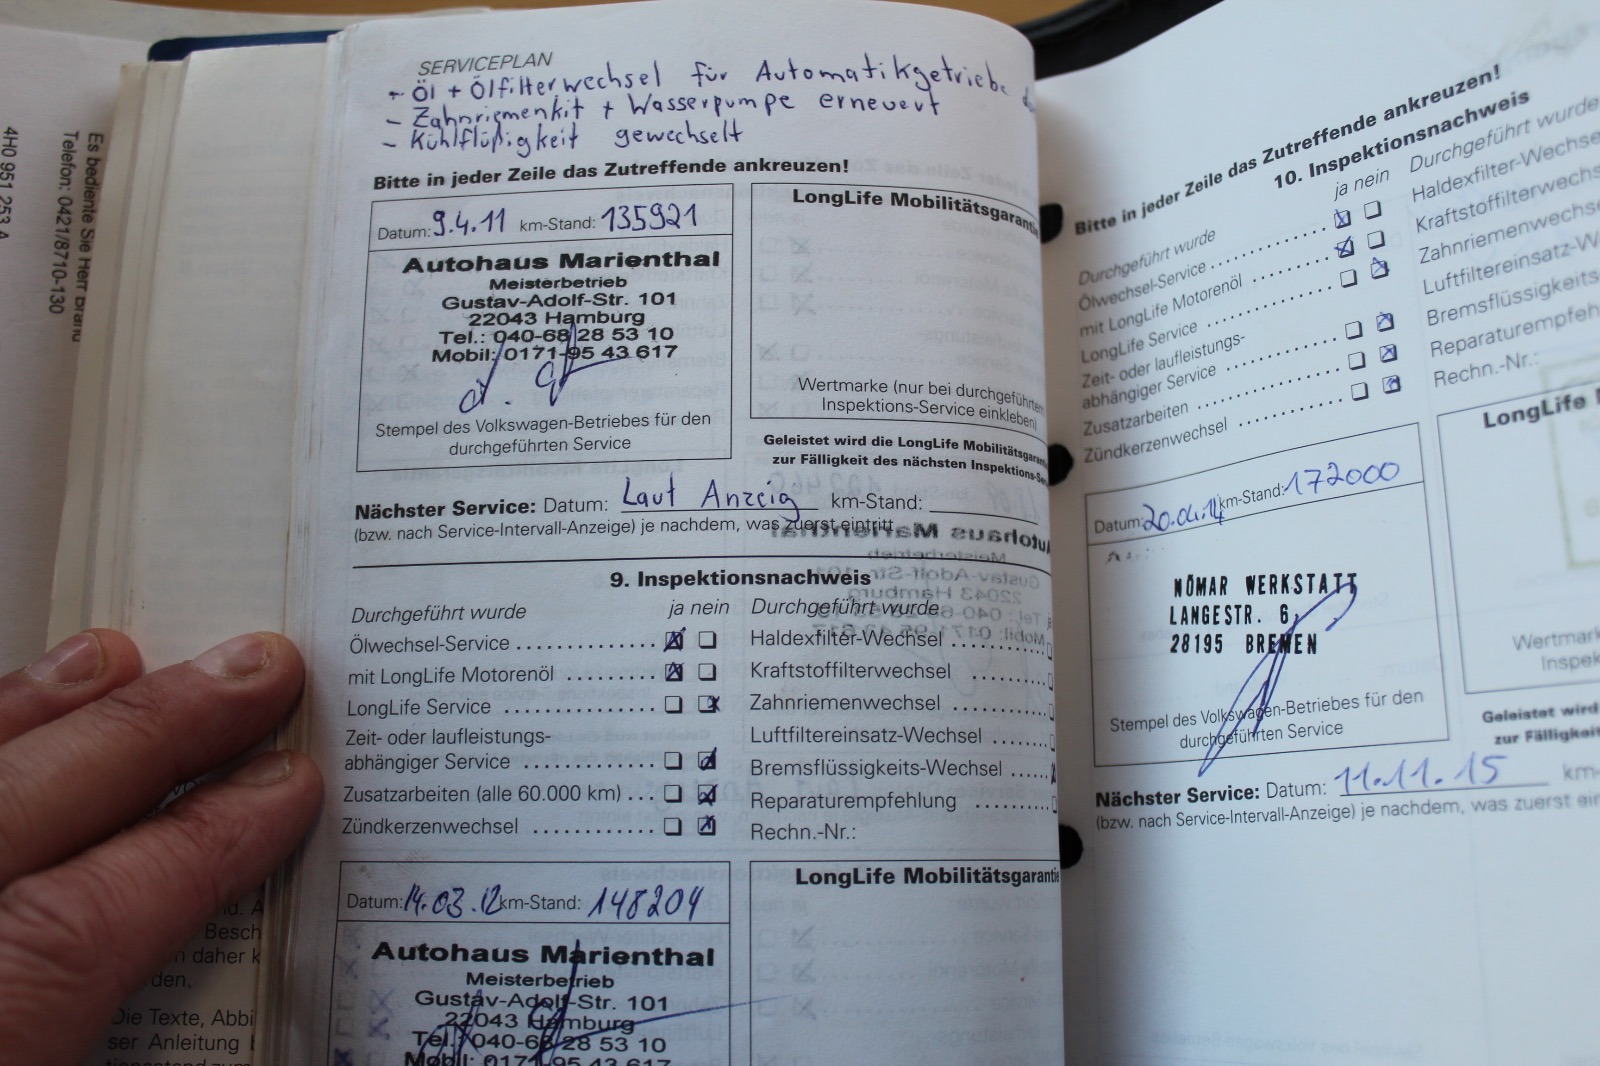 4H0 951 253 A
Es bediente Sie Herr Brand
Telefon: 0421/8710-130
SERVICEPLAN
- Öl + Ölfilterwechsel für Automatikgetriebe
- Zahnriemenkit + Wasserpumpe erneuert
- Kühlflüßigkeit gewechselt
Bitte in jeder Zeile das Zutreffende ankreuzen!
Datum: 9.4.11 km-Stand: 135921
Autohaus Marienthal
Meisterbetrieb
Gustav-Adolf-Str. 101
22043 Hamburg
Tel.: 040-68 28 53 10
Mobil: 0171-95 43 617
Stempel des Volkswagen-Betriebes für den
durchgeführten Service
LongLife Mobilitätsgarantie
Wertmarke (nur bei durchgeführtem
Inspektions-Service einkleben)
Geleistet wird die LongLife Mobilitätsgarantie
zur Fälligkeit des nächsten Inspektions-Ser
Nächster Service: Datum: Laut Anzeig km-Stand:
(bzw. nach Service-Intervall-Anzeige) je nachdem, was zuerst eintritt
9. Inspektionsnachweis
Durchgeführt wurde ja nein
Ölwechsel-Service
mit LongLife Motorenöl
LongLife Service
Zeit- oder laufleistungs-
abhängiger Service
Zusatzarbeiten (alle 60.000 km)
Zündkerzenwechsel
Durchgeführt wurde
Haldexfilter-Wechsel
Kraftstoffilterwechsel
Zahnriemenwechsel
Luftfiltereinsatz-Wechsel
Bremsflüssigkeits-Wechsel
Reparaturempfehlung
Rechn.-Nr.:
Datum: 14.03.12 km-Stand: 148204
Autohaus Marienthal
Meisterbetrieb
Gustav-Adolf-Str. 101
22043 Hamburg
Tel.: 040-68 28 53 10
Mobil: 0171-95 43 617
LongLife Mobilitätsgarantie
Besch
daher k
den,
Die Texte, Abbi
ser Anleitung
Bitte in jeder Zeile das Zutreffende ankreuzen!
10. Inspektionsnachweis
Durchgeführt wurde ja nein
Ölwechsel-Service
mit LongLife Motorenöl
LongLife Service
Zeit- oder laufleistungs-
abhängiger Service
Zusatzarbeiten
Zündkerzenwechsel
Durchgeführt wurde
Haldexfilter-Wechse
Kraftstoffilterwechs
Zahnriemenwechse
Luftfiltereinsatz-W
Bremsflüssigkeits
Reparaturempfeh
Rechn.-Nr.:
Datum: 20.01.14 km-Stand: 172000
NÖMAR WERKSTATT
LANGESTR. 6,
28195 BREMEN
Stempel des Volkswagen-Betriebes für den
durchgeführten Service
LongLife M
Wertmark
Inspek
Geleistet wird
zur Fälligkeit
Nächster Service: Datum: 11.11.15 km-
(bzw. nach Service-Intervall-Anzeige) je nachdem, was zuerst ein